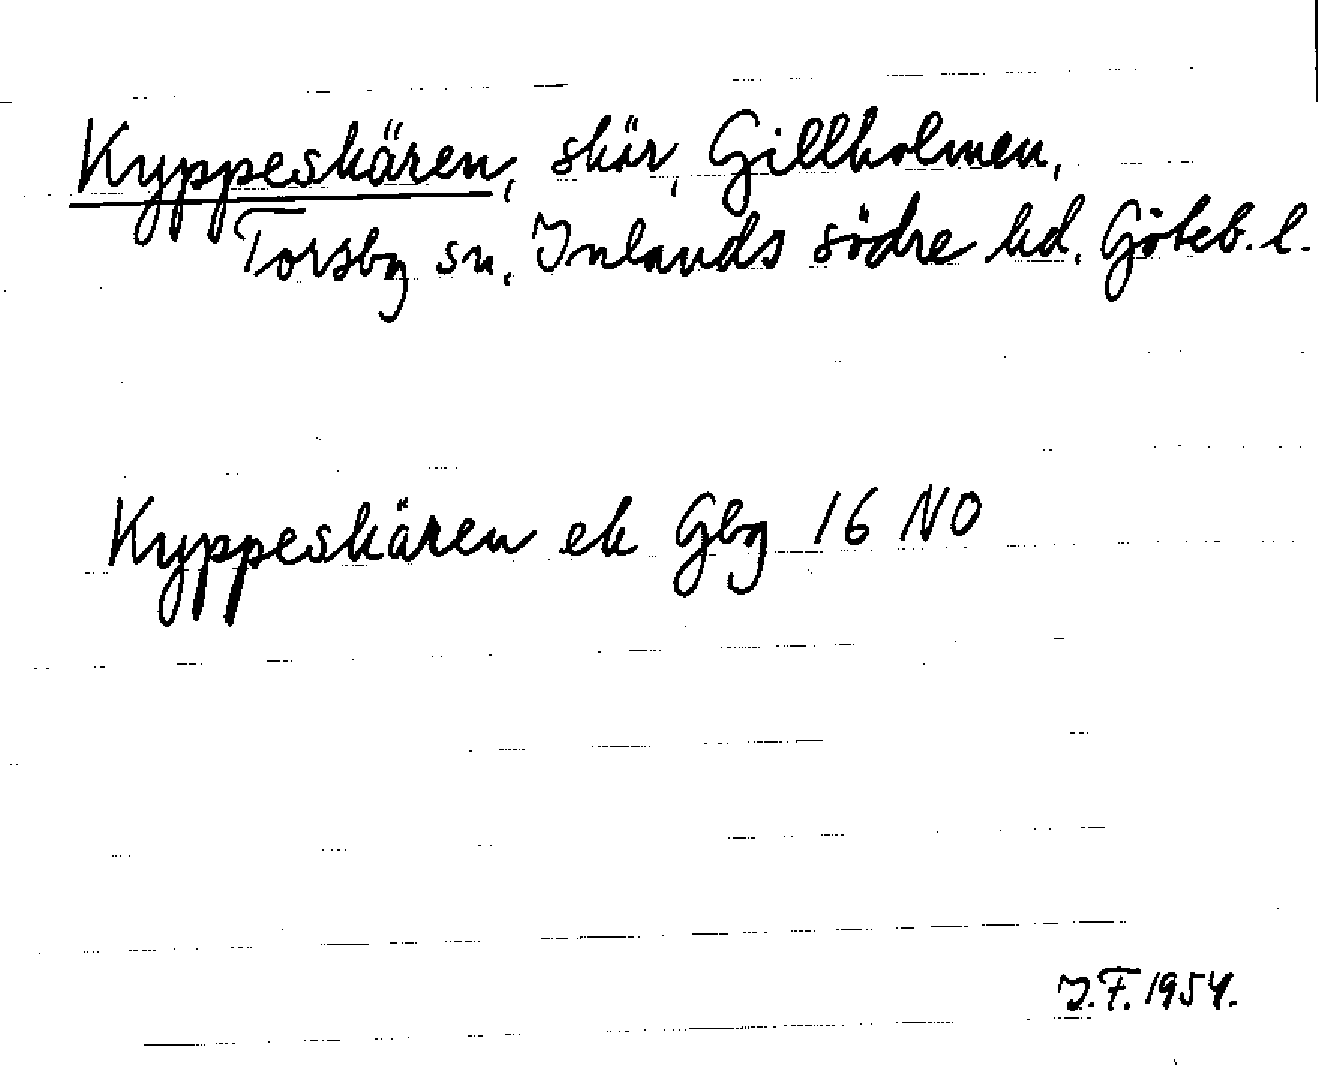 Kyppeskären, skär, Gillholmen,
Torsby sn, Inlands södre hd, Göteb. l.
Kyppeskären ek Gbg 16 NO
I.F. 1954.